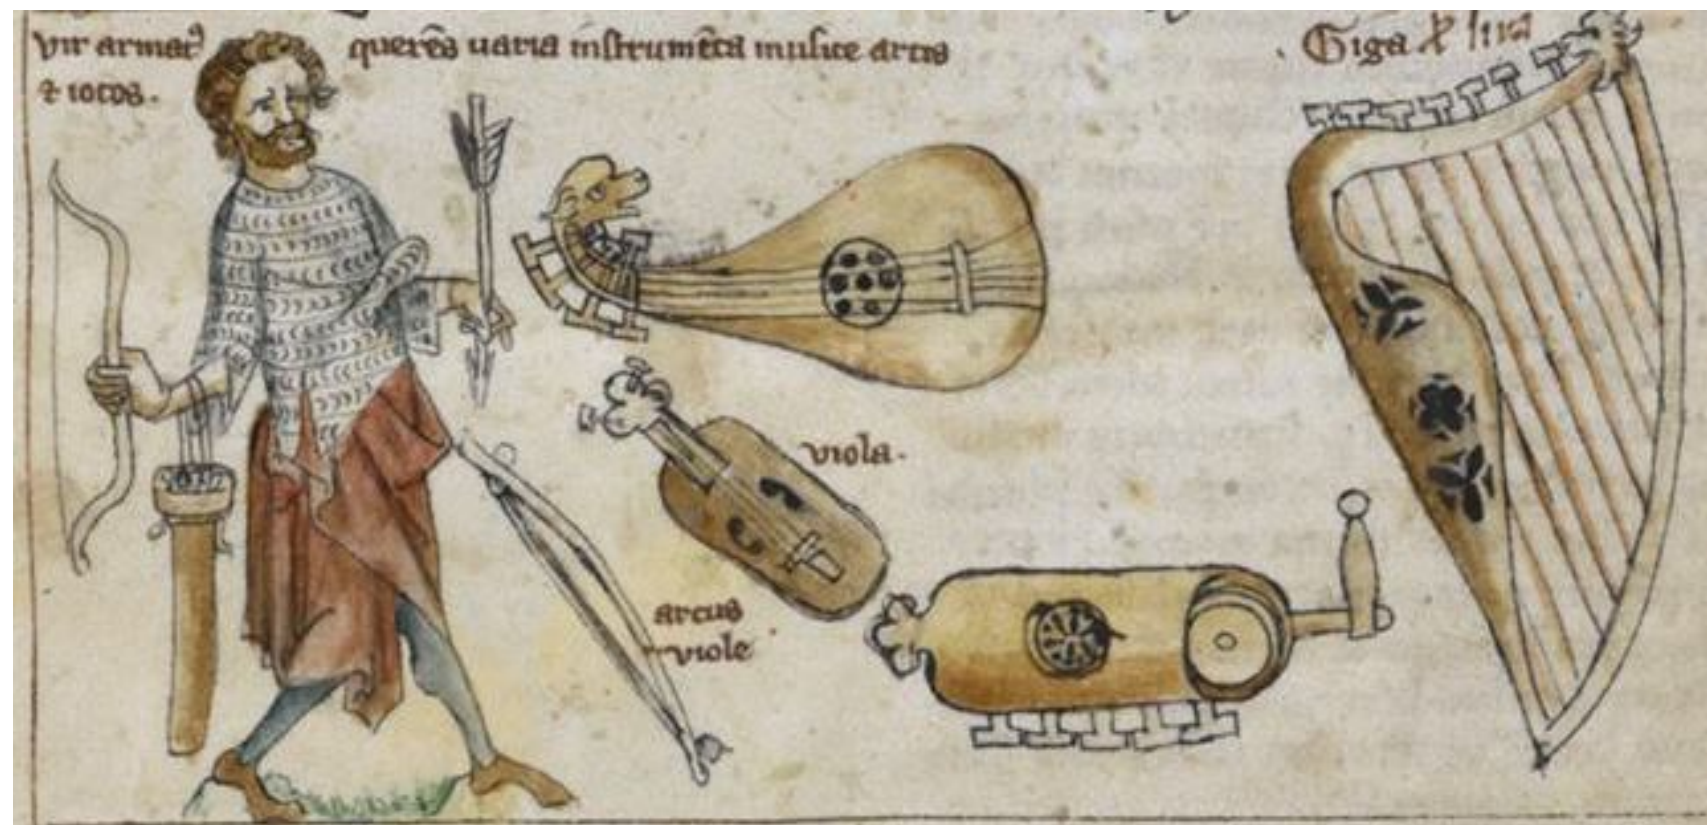 vir armatꝰ querēs uaria instrumēta musice artis
⁊ iocos.
Giga ł lira
viola.
arcus
viole